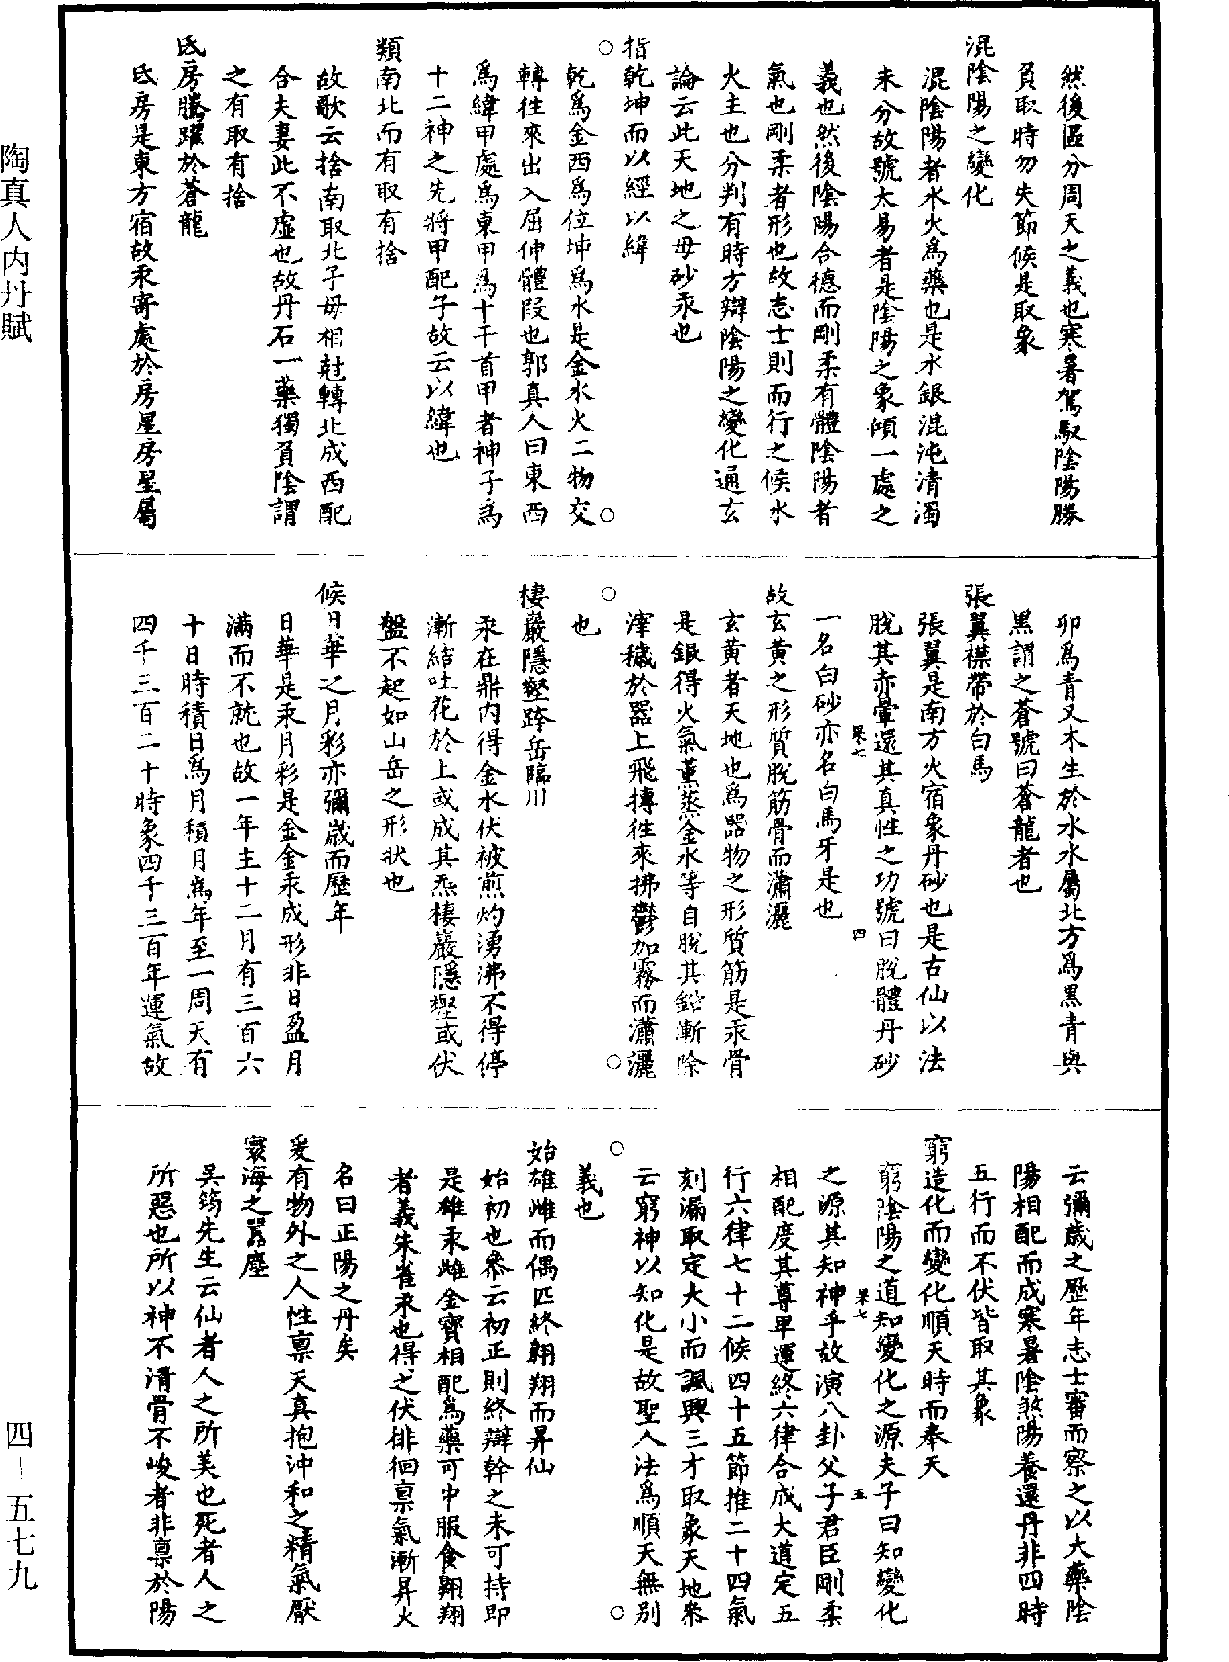 然後區分周天之義也寒暑駕馭陰陽勝
負取時勿失節候是取象
混陰陽之變化
混陰陽者水火爲藥也是水銀混沌清濁
未分故號太易者是陰陽之象傾一處之
義也然後陰陽合德而剛柔有體陰陽者
氣也剛柔者形也故志士則而行之候水
火主也分判有時方辯陰陽之變化通玄
論云此天地之母砂汞也
指乾坤而以經以緯
乾爲金西爲位坤爲水是金水火二物交
轉往來出入屈伸體段也郭真人曰東西
爲緯甲處爲東甲爲十干首甲者神子爲
十二神之先將甲配子故云以緯也
類南北而有取有捨
故歌云捨南取北子母相尅轉北成西配
合夫妻此不虛也故丹石一藥獨負陰謂
之有取有捨
氐房騰躍於蒼龍
氐房是東方宿故汞寄處於房星房星屬
卯爲青又木生於水水屬北方爲黑青與
黑謂之蒼號曰蒼龍者也
張翼襟帶於白馬
張翼是南方火宿象丹砂也是古仙以法
脫其赤暈還其真性之功號曰脫體丹砂
一名白砂亦名白馬牙是也
故玄黃之形質脫筋骨而瀟灑
玄黃者天地也爲器物之形質筋是汞骨
是銀得火氣薰蒸金水等自脫其鉛漸除
滓穢於器上飛摶往來拂鬱加霧而瀟灑
也
棲巖隱壑跨岳臨川
汞在鼎內得金水伏被煎灼湧沸不得停
漸結吐花於上或成其炁棲巖隱壑或伏
盤不起如山岳之形狀也
候日華之月彩亦彌歲而歷年
日華是汞月彩是金金汞成形非日盈月
滿而不就也故一年主十二月有三百六
十日時積日爲月積月爲年至一周天有
四千三百二十時象四千三百年運氣故
云彌歲之歷年志士審而察之以大藥陰
陽相配而成寒暑陰煞陽養還丹非四時
五行而不伏皆取其象
窮造化而變化順天時而奉天
窮陰陽之道知變化之源夫子曰知變化
之源其知神乎故演八卦父子君臣剛柔
相配度其尊卑運終六律合成大道定五
行六律七十二候四十五節推二十四氣
刻漏取定大小而諷興三才取象天地条
云窮神以知化是故聖人法爲順天無別
義也
始雄雌而偶匹終翱翔而昇仙
始初也叅云初正則終辯幹之未可持即
是雄汞雌金寶相配爲藥可中服食翱翔
者義朱雀汞也得之伏徘徊禀氣漸昇火
名曰正陽之丹矣
爰有物外之人性禀天真抱沖和之精氣厭
寰海之囂塵
吳筠先生云仙者人之所美也死者人之
所惡也所以神不清骨不峻者非禀於陽
陶真人内丹賦
四－五七九
累七
四
累七
五